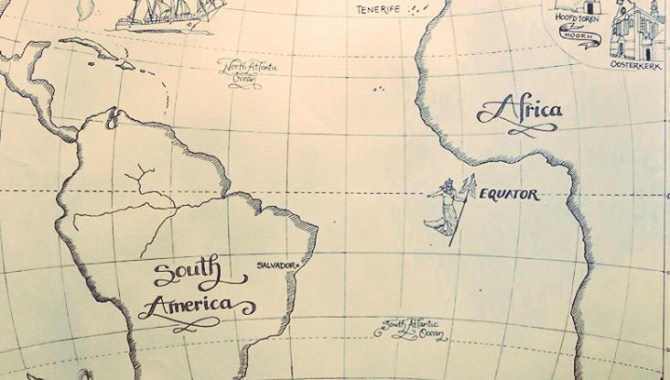 TENERIFE
HOOFDTOREN
HOORN
OOSTERKERK
North Atlantic
Ocean
Africa
EQUATOR
SALVADOR
South
America
South Atlantic
Ocean